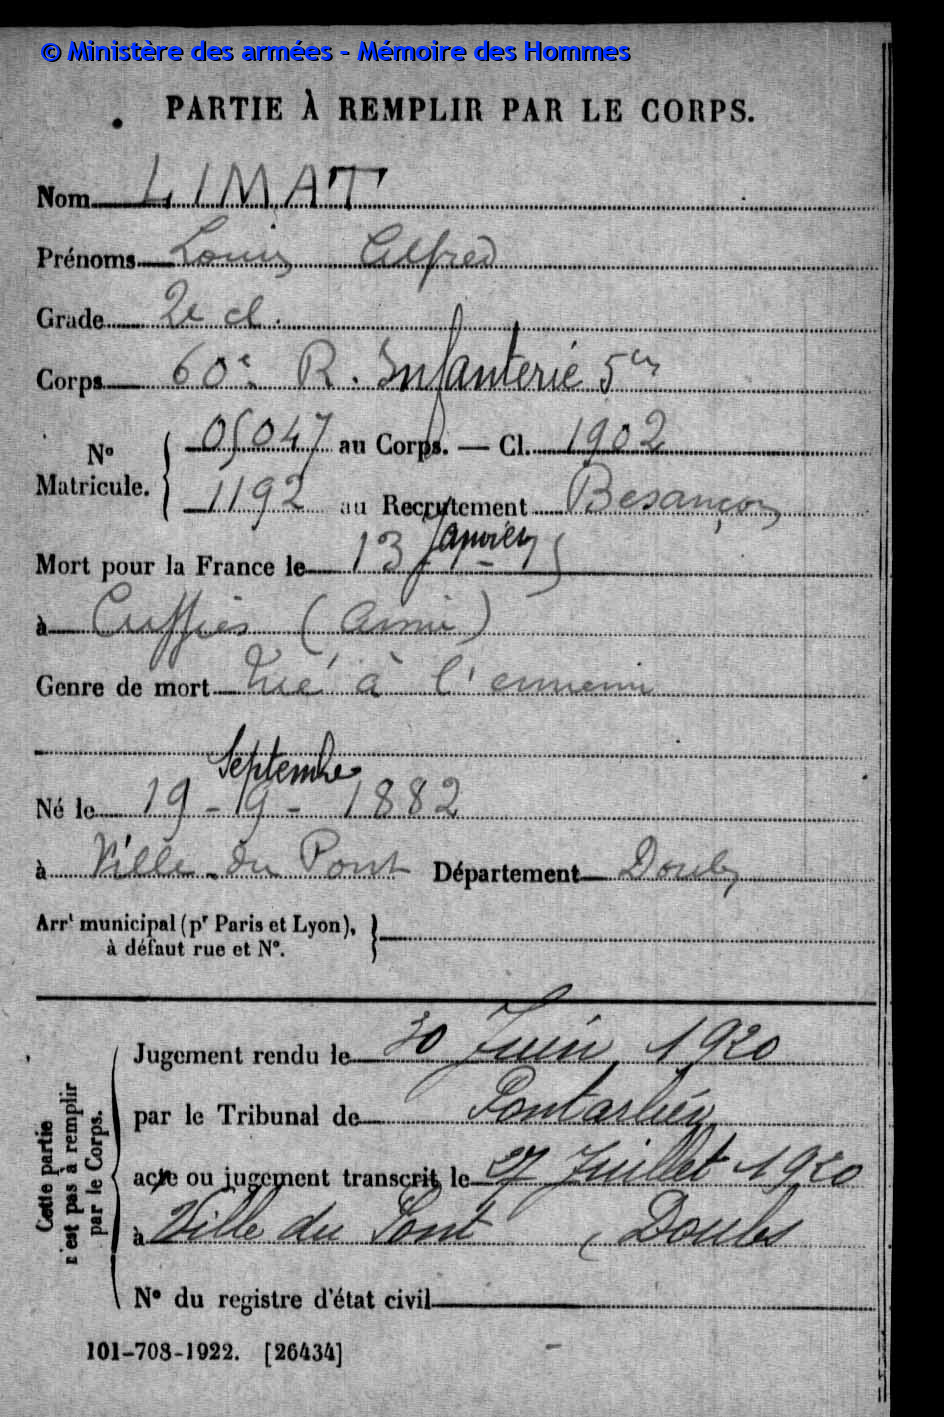 © Ministère des armées - Mémoire des Hommes
PARTIE À REMPLIR PAR LE CORPS.
Nom LIMAT
Prénoms Louis Alfred
Grade 2e cl.
Corps 60e R. Infanterie
N° Matricule. 05047 au Corps. — Cl. 1902
1192 au Recrutement Besançon
Mort pour la France le 13 Janvier 15
à Cuffies (Aisne)
Genre de mort Tué à l'ennemi
Septembre
Né le 19 - 9 - 1882
à Ville-du Pont Département Doubs
Arrt municipal (pr Paris et Lyon),
à défaut rue et N°.
Jugement rendu le 30 Juin 1920
par le Tribunal de Pontarlier
acte ou jugement transcrit le 27 Juillet 1920
à Ville du Pont (Doubs
N° du registre d'état civil
Cette partie
n'est pas à remplir
par le Corps.
101-708-1922. [26434]